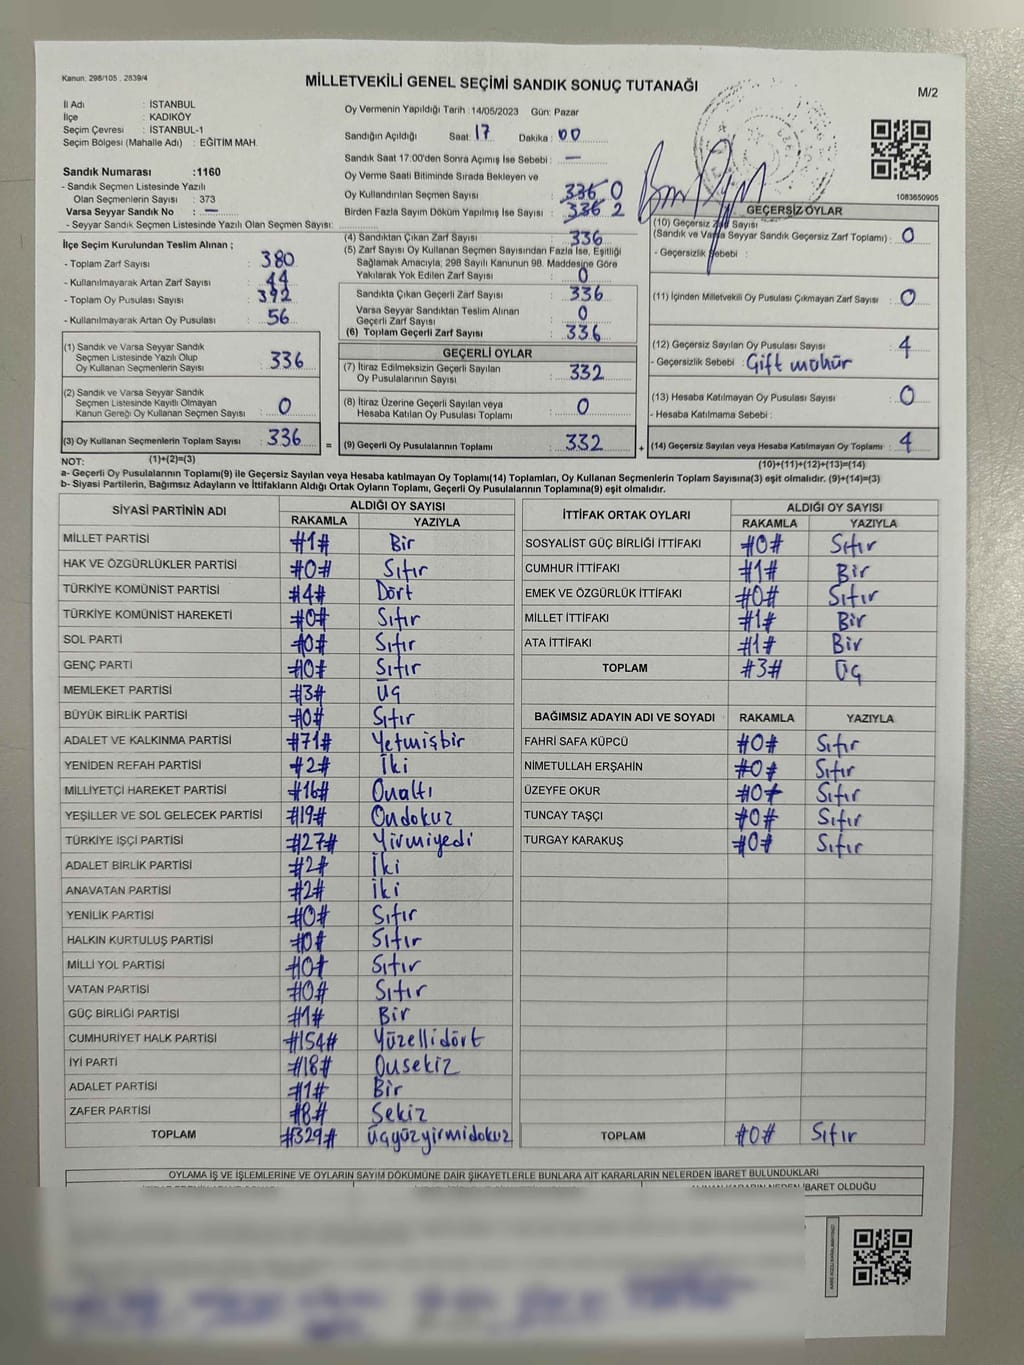 Kanun: 298/105 , 2839/4
MİLLETVEKİLİ GENEL SEÇİMİ SANDIK SONUÇ TUTANAĞI
M/2
İl Adı : İSTANBUL
İlçe : KADIKÖY
Seçim Çevresi : İSTANBUL-1
Seçim Bölgesi (Mahalle Adı) : EĞİTİM MAH.
Sandık Numarası :1160
- Sandık Seçmen Listesinde Yazılı
Olan Seçmenlerin Sayısı : 373
Varsa Seyyar Sandık No : —
- Seyyar Sandık Seçmen Listesinde Yazılı Olan Seçmen Sayısı:
İlçe Seçim Kurulundan Teslim Alınan ;
- Toplam Zarf Sayısı : 380
- Kullanılmayarak Artan Zarf Sayısı : 44
- Toplam Oy Pusulası Sayısı : 392
- Kullanılmayarak Artan Oy Pusulası : 56
(1) Sandık ve Varsa Seyyar Sandık
Seçmen Listesinde Yazılı Olup
Oy Kullanan Seçmenlerin Sayısı : 336
(2) Sandık ve Varsa Seyyar Sandık
Seçmen Listesinde Kayıtlı Olmayan
Kanun Gereği Oy Kullanan Seçmen Sayısı : 0
(3) Oy Kullanan Seçmenlerin Toplam Sayısı : 336
Oy Vermenin Yapıldığı Tarih : 14/05/2023 Gün: Pazar
Sandığın Açıldığı Saat: 17 Dakika : 00
Sandık Saat 17:00'den Sonra Açılmış İse Sebebi : —
Oy Verme Saati Bitiminde Sırada Bekleyen ve
Oy Kullandırılan Seçmen Sayısı : 336 0
Birden Fazla Sayım Döküm Yapılmış İse Sayısı : 336 2
(4) Sandıktan Çıkan Zarf Sayısı : 336
(5) Zarf Sayısı Oy Kullanan Seçmen Sayısından Fazla İse, Eşitliği
Sağlamak Amacıyla; 298 Sayılı Kanunun 98. Maddesine Göre
Yakılarak Yok Edilen Zarf Sayısı : 0
Sandıkta Çıkan Geçerli Zarf Sayısı : 336
Varsa Seyyar Sandıktan Teslim Alınan
Geçerli Zarf Sayısı : 0
(6) Toplam Geçerli Zarf Sayısı : 336
GEÇERLİ OYLAR
(7) İtiraz Edilmeksizin Geçerli Sayılan
Oy Pusulalarının Sayısı : 332
(8) İtiraz Üzerine Geçerli Sayılan veya
Hesaba Katılan Oy Pusulası Toplamı : 0
= (9) Geçerli Oy Pusulalarının Toplamı : 332
1083650905
GEÇERSİZ OYLAR
(10) Geçersiz Zarf Sayısı
(Sandık ve Varsa Seyyar Sandık Geçersiz Zarf Toplamı) : 0
- Geçersizlik Sebebi :
(11) İçinden Milletvekili Oy Pusulası Çıkmayan Zarf Sayısı : 0
(12) Geçersiz Sayılan Oy Pusulası Sayısı : 4
- Geçersizlik Sebebi : Çift mühür
(13) Hesaba Katılmayan Oy Pusulası Sayısı : 0
- Hesaba Katılmama Sebebi :
+ (14) Geçersiz Sayılan veya Hesaba Katılmayan Oy Toplamı : 4
NOT: (1)+(2)=(3)
(10)+(11)+(12)+(13)=(14)
a- Geçerli Oy Pusulalarının Toplamı(9) ile Geçersiz Sayılan veya Hesaba katılmayan Oy Toplamı(14) Toplamları, Oy Kullanan Seçmenlerin Toplam Sayısına(3) eşit olmalıdır. (9)+(14)=(3)
b- Siyasi Partilerin, Bağımsız Adayların ve İttifakların Aldığı Ortak Oyların Toplamı, Geçerli Oy Pusulalarının Toplamına(9) eşit olmalıdır.
SİYASİ PARTİNİN ADI ALDIĞI OY SAYISI
RAKAMLA YAZIYLA
MİLLET PARTİSİ #1# Bir
HAK VE ÖZGÜRLÜKLER PARTİSİ #0# Sıfır
TÜRKİYE KOMÜNİST PARTİSİ #4# Dört
TÜRKİYE KOMÜNİST HAREKETİ #0# Sıfır
SOL PARTİ #0# Sıfır
GENÇ PARTİ #0# Sıfır
MEMLEKET PARTİSİ #3# Üç
BÜYÜK BİRLİK PARTİSİ #0# Sıfır
ADALET VE KALKINMA PARTİSİ #71# Yetmişbir
YENİDEN REFAH PARTİSİ #2# İki
MİLLİYETÇİ HAREKET PARTİSİ #16# Onaltı
YEŞİLLER VE SOL GELECEK PARTİSİ #19# Ondokuz
TÜRKİYE İŞÇİ PARTİSİ #27# Yirmiyedi
ADALET BİRLİK PARTİSİ #2# İki
ANAVATAN PARTİSİ #2# İki
YENİLİK PARTİSİ #0# Sıfır
HALKIN KURTULUŞ PARTİSİ #0# Sıfır
MİLLİ YOL PARTİSİ #0# Sıfır
VATAN PARTİSİ #0# Sıfır
GÜÇ BİRLİĞİ PARTİSİ #1# Bir
CUMHURİYET HALK PARTİSİ #154# Yüzellidört
İYİ PARTİ #18# Onsekiz
ADALET PARTİSİ #1# Bir
ZAFER PARTİSİ #8# Sekiz
TOPLAM #329# Üçyüzyirmidokuz
İTTİFAK ORTAK OYLARI ALDIĞI OY SAYISI
RAKAMLA YAZIYLA
SOSYALİST GÜÇ BİRLİĞİ İTTİFAKI #0# Sıfır
CUMHUR İTTİFAKI #1# Bir
EMEK VE ÖZGÜRLÜK İTTİFAKI #0# Sıfır
MİLLET İTTİFAKI #1# Bir
ATA İTTİFAKI #1# Bir
TOPLAM #3# Üç
BAĞIMSIZ ADAYIN ADI VE SOYADI RAKAMLA YAZIYLA
FAHRİ SAFA KÜPCÜ #0# Sıfır
NİMETULLAH ERŞAHİN #0# Sıfır
ÜZEYFE OKUR #0# Sıfır
TUNCAY TAŞÇI #0# Sıfır
TURGAY KARAKUŞ #0# Sıfır
TOPLAM #0# Sıfır
OYLAMA İŞ VE İŞLEMLERİNE VE OYLARIN SAYIM DÖKÜMÜNE DAİR ŞİKAYETLERLE BUNLARA AİT KARARLARIN NELERDEN İBARET BULUNDUKLARI
ALINAN KARARIN NEDEN İBARET OLDUĞU